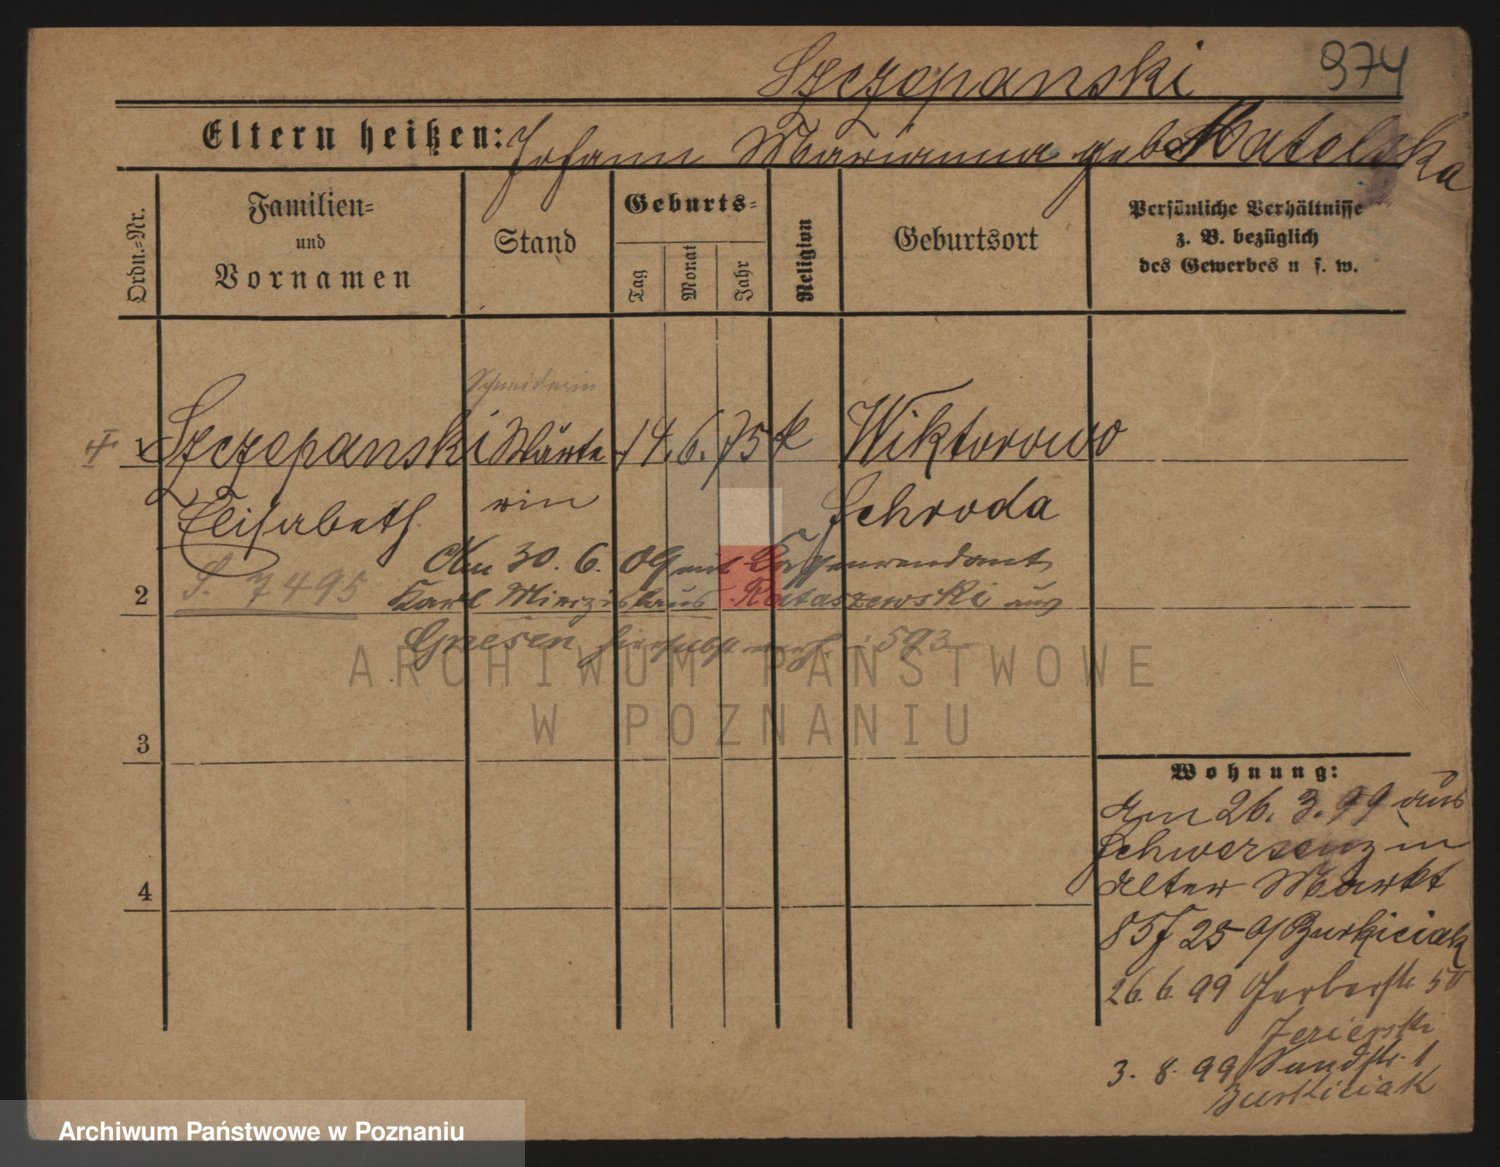 Szczepanski 974
Eltern heißen: Johann Marianna geb. Ratelska
Ordn.=Nr.
Familien= und Vornamen
Stand
Geburts=
Tag
Monat
Jahr
Religion
Geburtsort
Persönliche Verhältnisse
z. B. bezüglich
des Gewerbes u s. w.
Schneiderin
1 Szczepanski Wärte 14. 6. 75 k Wiktorowo
Elisabeth rin Schroda
Am 30. 6. 09 mit
S. 7495
2 Karl Miecislaus Rataszewski aus
Gnesen hierselbst 593
ARCHIWUM PAŃSTWOWE
W POZNANIU
3
4
Wohnung:
Am 26. 3. 99 aus
Schwersenz in
Alter Markt
85 25 Burkiciak
26. 6. 99 Gerberstr 50
Jezierski
3. 8. 99 Sandstr. 1
Burkiciak
Archiwum Państwowe w Poznaniu